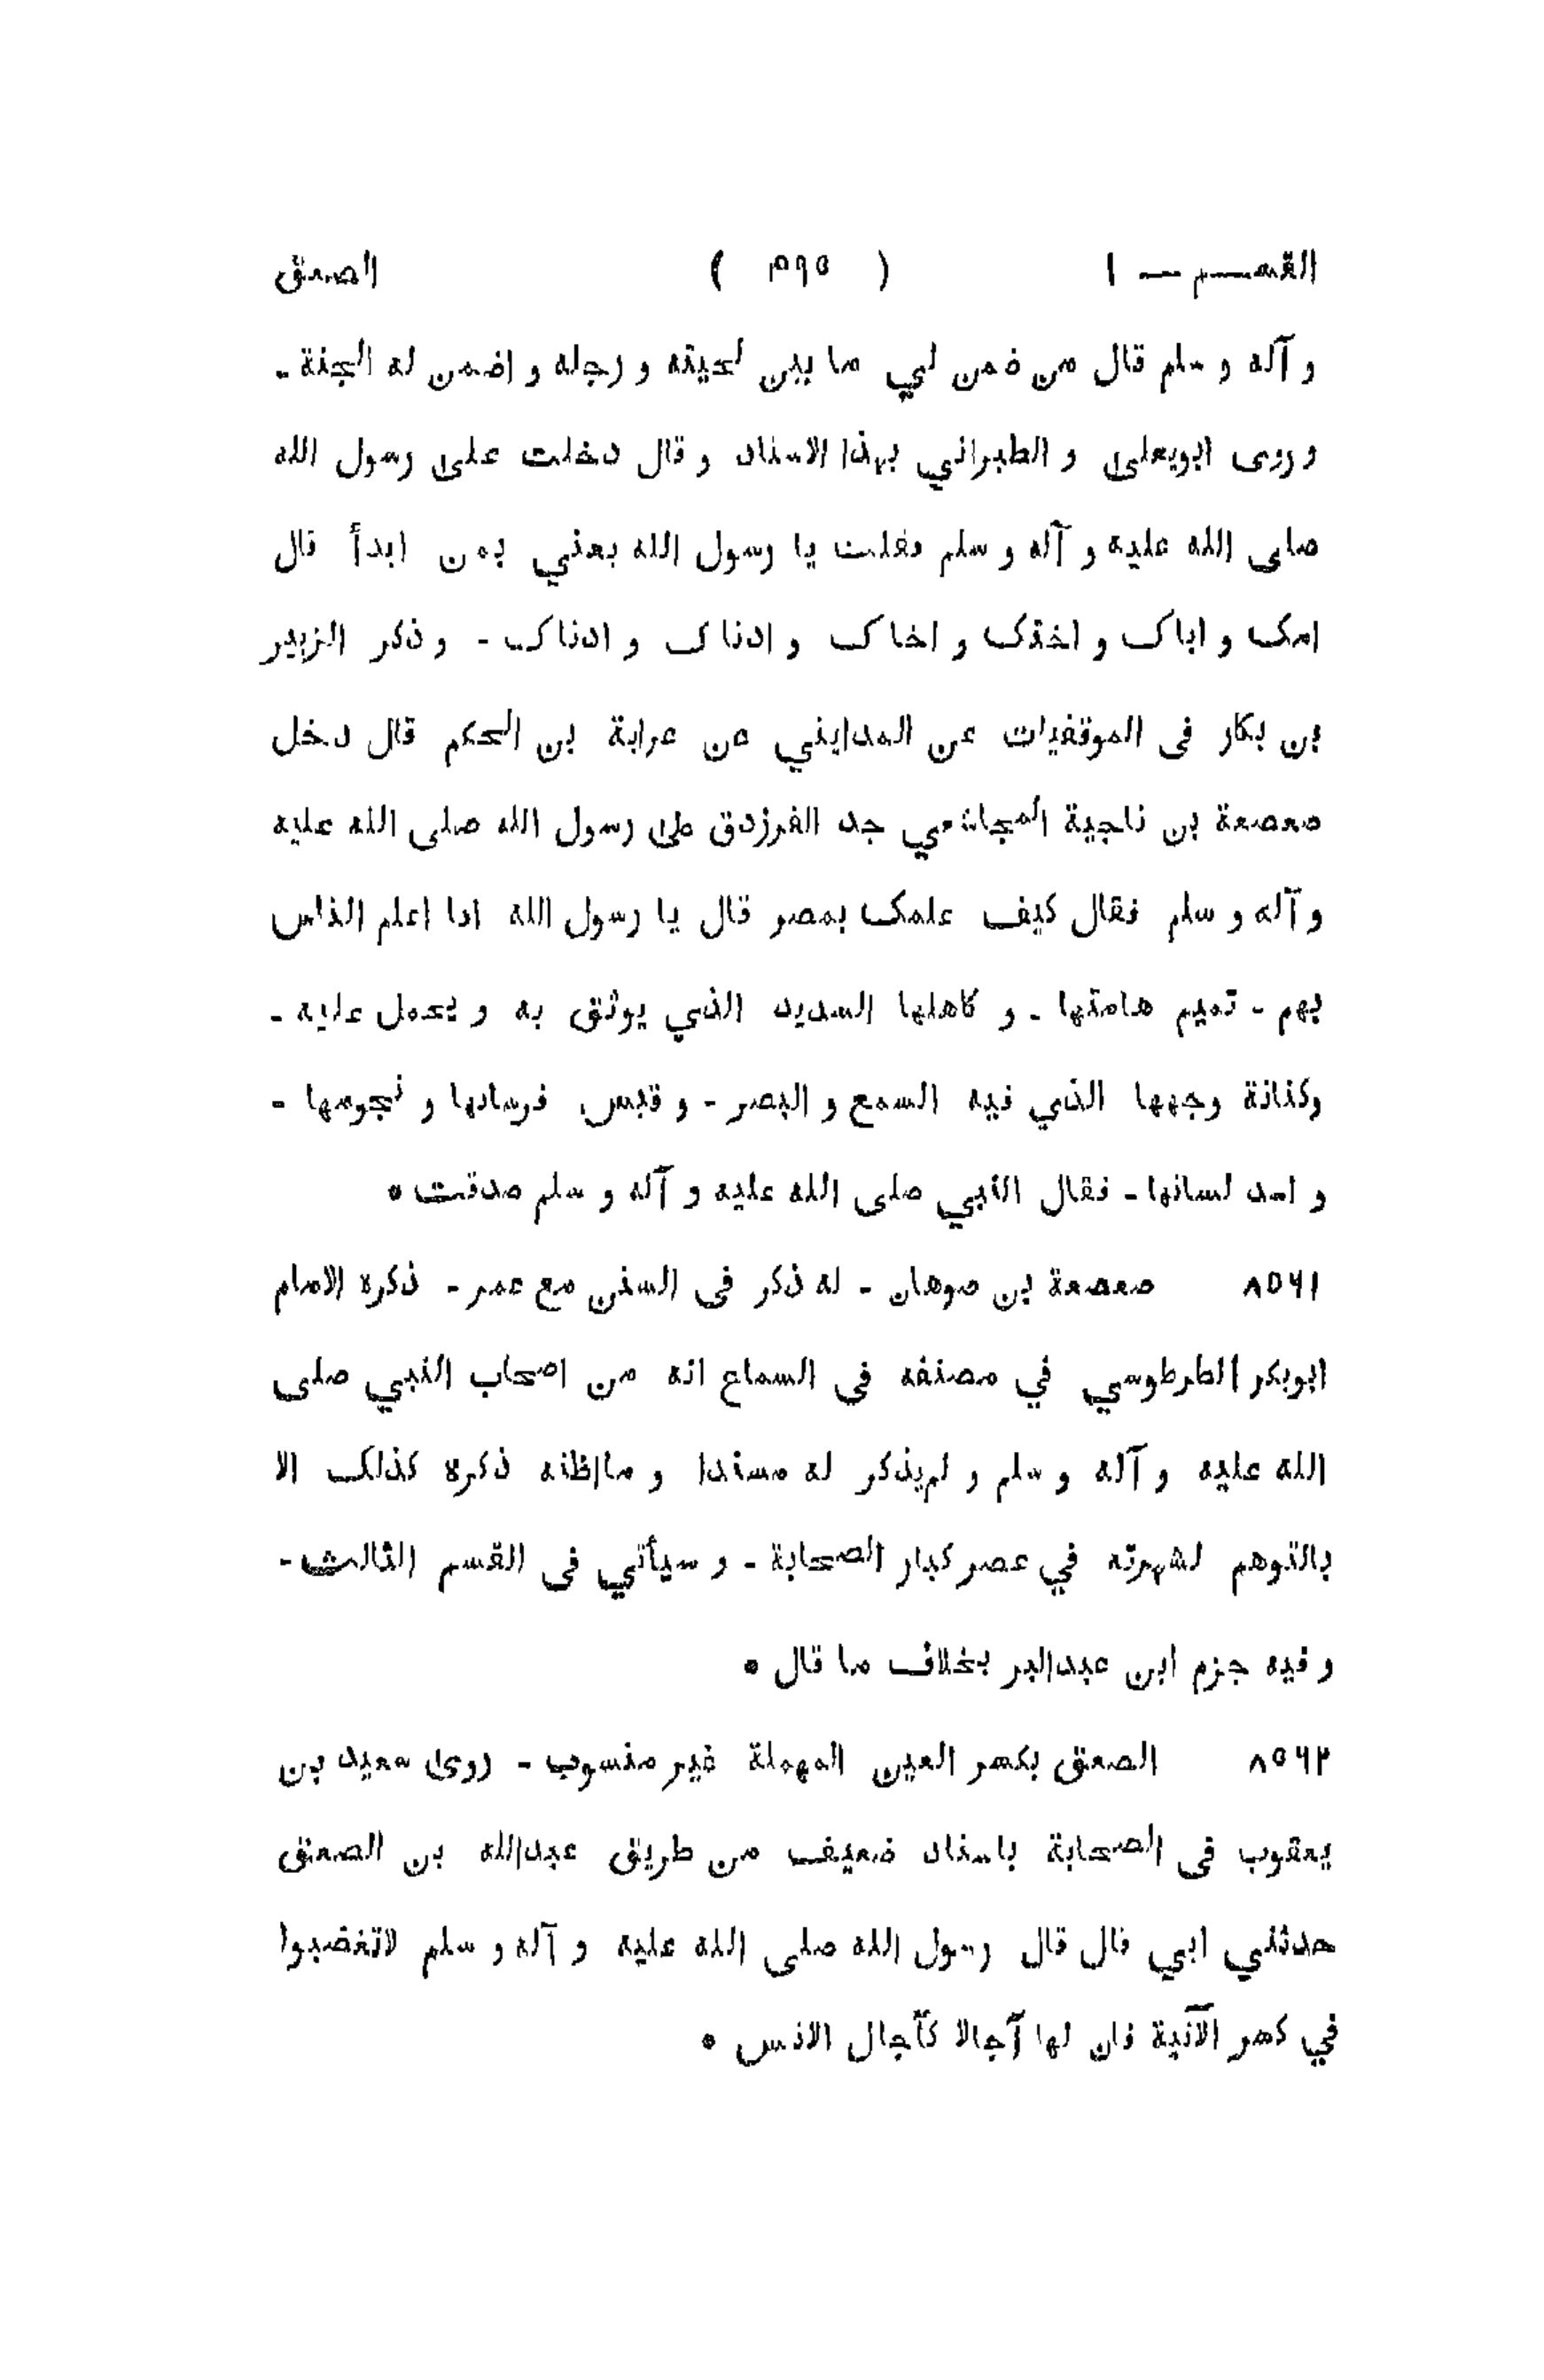 القسم — ١ ( ٤٩٥ ) الصعق
و آله و سلم قال من ضمن لي ما بين لحيته و رجله و اضمن له الجنة -
و روى ابويعلى و الطبراني بهذا الاسناد و قال دخلت على رسول الله
صلى الله عليه و آله و سلم فقلت يا رسول الله بعني بمن ابدأ قال
امك و اباك و اختك و اخاك و ادناك و ادناك - و ذكر الزبير
بن بكار فى الموقفيات عن المدايني عن عرابة بن الحكم قال دخل
صعصعة بن ناجية المجاشعي جد الفرزدق على رسول الله صلى الله عليه
و آله و سلم فقال كيف علمك بمضر قال يا رسول الله انا اعلم الناس
بهم - تميم هامتها - و كاهلها السديد الذي يوثق به و يحمل عليه -
وكنانة وجهها الذي فيه السمع و البصر - و قيس فرسانها و نجومها -
و اسد لسانها - فقال النبي صلى الله عليه و آله و سلم صدقت *
٨٥٦١ صعصعة بن صوهان - له ذكر فى السنن مع عمر - ذكره الامام
ابوبكر الطرطوسي في مصنفه فى السماع انه من اصحاب النبي صلى
الله عليه و آله و سلم و لم يذكر له مسندا و ما اظنه ذكره كذلك الا
بالتوهم لشهرته في عصر كبار الصحابة - و سيأتي فى القسم الثالث -
و فيه جزم ابن عبدالبر بخلاف ما قال *
٨٥٦٢ الصعق بكسر العين المهملة غير منسوب - روى سعيد بن
يعقوب فى الصحابة باسناد ضعيف من طريق عبدالله بن الصعق
حدثني ابي قال قال رسول الله صلى الله عليه و آله و سلم لاتغضبوا
في كسر الآنية فان لها آجالا كآجال الانس *